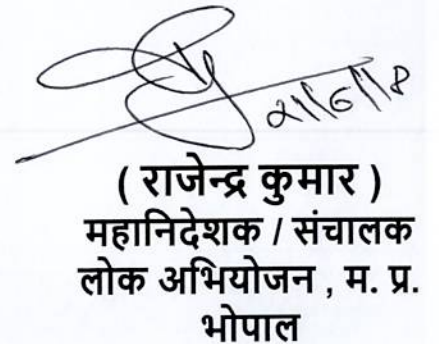 21/6/18
( राजेन्द्र कुमार )
महानिदेशक / संचालक
लोक अभियोजन , म. प्र.
भोपाल